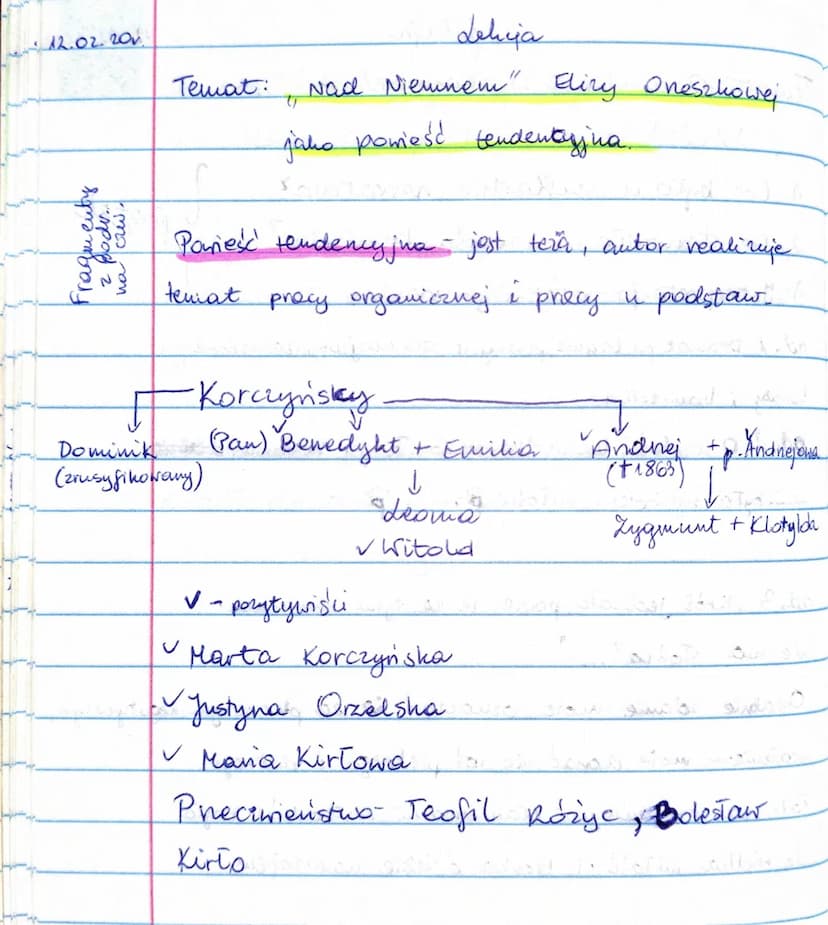 12.02.20r.
Lekcja
Temat: „Nad Niemnem" Elizy Orzeszkowej
jako powieść tendencyjna.
Fragmenty
z podr.
na czw.
Powieść tendencyjna - jest teza, autor realizuje
temat pracy organicznej i pracy u podstaw.
Korczyńscy
Dominik (Pan) Benedykt + Emilia ✓ Andrzej + p. Andrzejowa
(zrusyfikowany) (†1863)
Leonia Zygmunt + Klotylda
✓ Witold
✓ - pozytywiści
✓ Marta Korczyńska
✓ Justyna Orzelska
✓ Maria Kirłowa
Przeciwieństwo - Teofil Różyc, Bolesław
Kirło